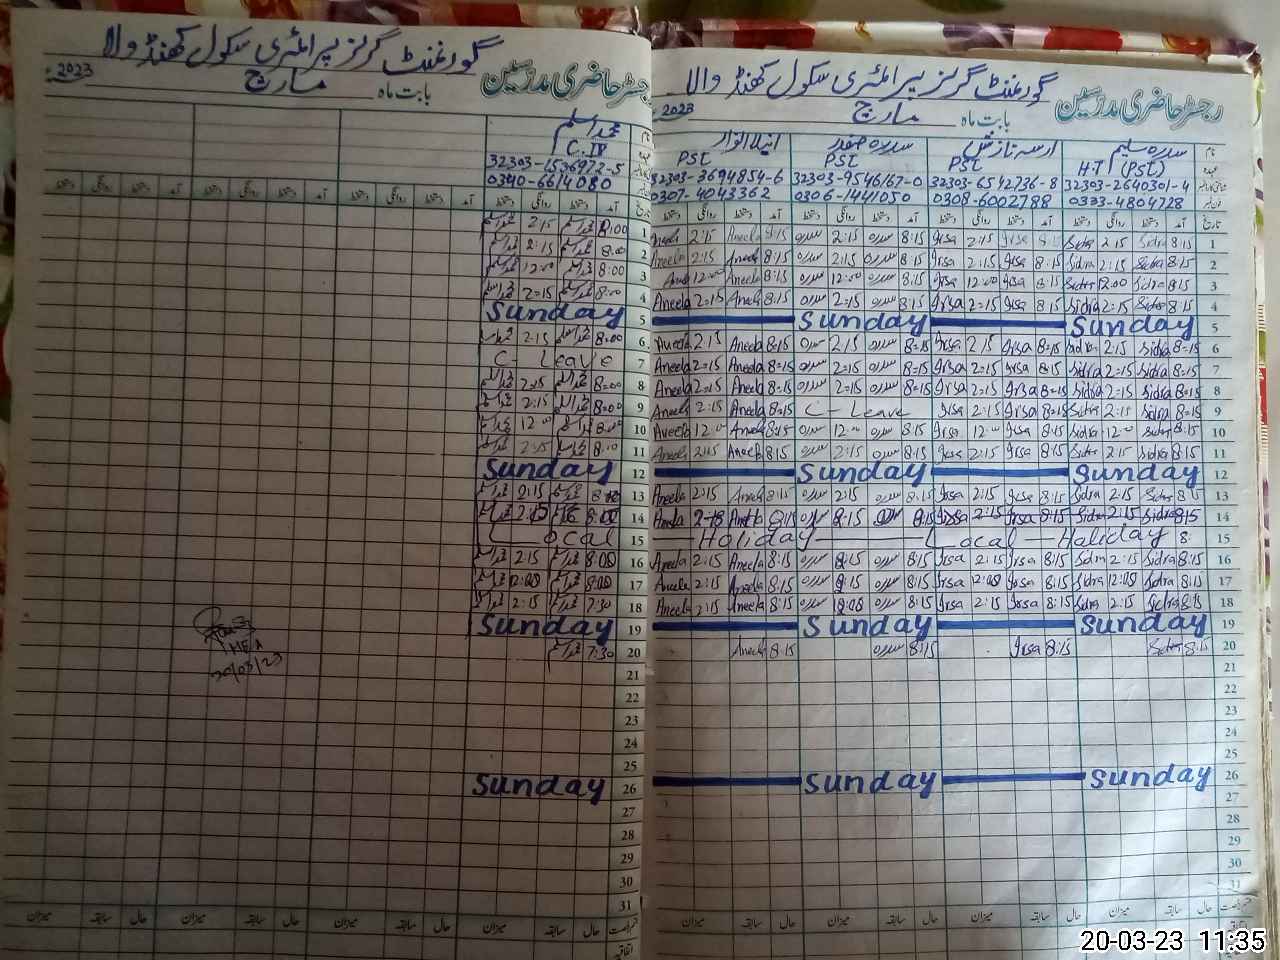 گورنمنٹ گرلز پرائمری سکول کھنڈ والا
رجسٹر حاضری مدرسین
بابت ماہ مارچ 2023
سدرہ سلیم
H.T (PST)
32303-2640301-4
0303-4804728
ارسہ نازش
PST
32303-6542736-8
0308-6002788
سدرہ صفدر
PST
32303-9546167-0
0306-1441050
انیلا انوار
PST
32303-3694854-6
0307-4043362
تاریخ آمد دستخط روانگی دستخط آمد دستخط روانگی دستخط آمد دستخط روانگی دستخط آمد دستخط روانگی دستخط
1 8:15 Sidra 2:15 Sidra 8:15 Irsa 2:15 Irsa 8:15 سدرہ 2:15 سدرہ 8:15 Aneela 2:15 Aneela
2 8:15 Sidra 2:15 Sidra 8:15 Irsa 2:15 Irsa 8:15 سدرہ 2:15 سدرہ 8:15 Aneela 2:15 Aneela
3 8:15 Sidra 12:00 Sidra 8:15 Irsa 12:00 Irsa 8:15 سدرہ 12:00 سدرہ 8:15 Aneela 12:00 Aneela
4 8:15 Sidra 2:15 Sidra 8:15 Irsa 2=15 Irsa 8:15 سدرہ 2:15 سدرہ 8:15 Aneela 2:15 Aneela
5 Sunday Sunday
6 8=15 Sidra 2:15 Sidra 8=15 Irsa 2:15 Irsa 8=15 سدرہ 2:15 سدرہ 8=15 Aneela 2:15 Aneela
7 8=15 Sidra 2=15 Sidra 8=15 Irsa 2=15 Irsa 8=15 سدرہ 2=15 سدرہ 8=15 Aneela 2=15 Aneela
8 8=15 Sidra 2=15 Sidra 8=15 Irsa 2=15 Irsa 8=15 سدرہ 2=15 سدرہ 8=15 Aneela 2=15 Aneela
9 8=15 Sidra 2:15 Sidra 8=15 Irsa 2:15 Irsa C-Leave 8=15 Aneela 2:15 Aneela
10 8:15 Sidra 12:00 Sidra 8:15 Irsa 12:00 Irsa 8:15 سدرہ 12:00 سدرہ 8:15 Aneela 12:00 Aneela
11 8:15 Sidra 2:15 Sidra 8:15 Irsa 2:15 Irsa 8:15 سدرہ 2:15 سدرہ 8:15 Aneela 2:15 Aneela
12 Sunday Sunday
13 Sidra 2:15 Sidra 8:15 Irsa 2:15 Irsa 8:15 سدرہ 2:15 سدرہ 8:15 Aneela 2:15 Aneela
14 8:15 Sidra 2:15 Sidra 8:15 Irsa 2:15 Irsa 8:15 سدرہ 2:15 سدرہ 8:15 Aneela Aneela
15 Holiday Local Haliday
16 8:15 Sidra 2:15 Sidra 8:15 Irsa 2:15 Irsa 8:15 سدرہ 2:15 سدرہ 8:15 Aneela 2:15 Aneela
17 8:15 Sidra 12:00 Sidra 8:15 Irsa 12:00 Irsa 8:15 سدرہ 2:15 سدرہ 8:15 Aneela 2:15 Aneela
18 8:15 Sidra 2:15 Sidra 8:15 Irsa 2:15 Irsa 8:15 سدرہ 12:00 سدرہ 8:15 Aneela 2:15 Aneela
19 Sunday Sunday
20 8:15 Sidra 8:15 Irsa 8:15 سدرہ 8:15 Aneela
21
22
23
24
25
26 Sunday Sunday
27
28
29
30
31
حال سابقہ میزان حال سابقہ میزان
گورنمنٹ گرلز پرائمری سکول کھنڈ والا
رجسٹر حاضری مدرسین
بابت ماہ مارچ 2023
محمد اسلم
C.IV
32303-1536972-5
0340-6614080
1 8:00 2:15
2 8:00 2:15
3 8:00 12:00
4 8:00 2=15
5 Sunday
6 8=00 2:15
7 C- Leave
8 8=00 2:15
9 8=00 2:15
10 8:00 12:00
11 8:00 2:15
12 Sunday
13 8:00 2:15
14 8:00 2:15
15 Local
16 8:00 2:15
17 8:00 12:00
18 7:30 2:15
19 Sunday
20 7:30
21
22
23
24
25
26 Sunday
27
28
29
30
31
حال سابقہ میزان حال سابقہ میزان
20/03/23
20-03-23 11:35